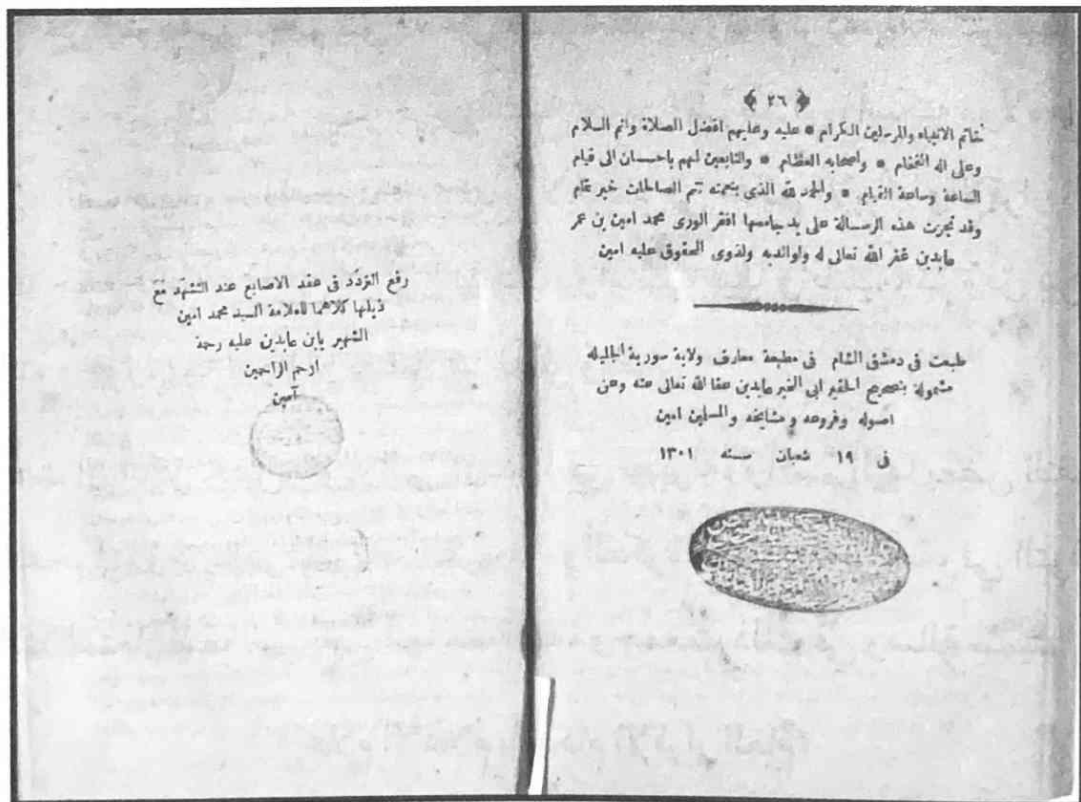 ﴿ ٢٦ ﴾
خاتم الانبياء والمرسلين الكرام * عليه وعليهم افضل الصلاة واتم السلام
وعلى اله الفخام * واصحابه العظام * والتابعين لهم باحسان الى قيام
الساعة وساعة القيام * والحمد لله الذى بنعمته تتم الصالحات خير ختام
وقد نجزت هذه الرسالة على يد جامعها افقر الورى محمد امين بن عمر
عابدين غفر الله تعالى له ولوالديه ولذوى الحقوق عليه امين
طبعت فى دمشق الشام فى مطبعة معارف ولاية سورية الجليله
مشمولة بتصحيح الحقير ابى الخير عابدين عفا الله تعالى عنه وعن
اصوله وفروعه ومشايخه والمسلمين امين
فى ١٩ شعبان سنه ١٣٠١
رفع التردد فى عقد الاصابع عند التشهد مع
ذيلها كلاهما للعلامة السيد محمد امين
الشهير بابن عابدين عليه رحمة
ارحم الراحمين
آمين